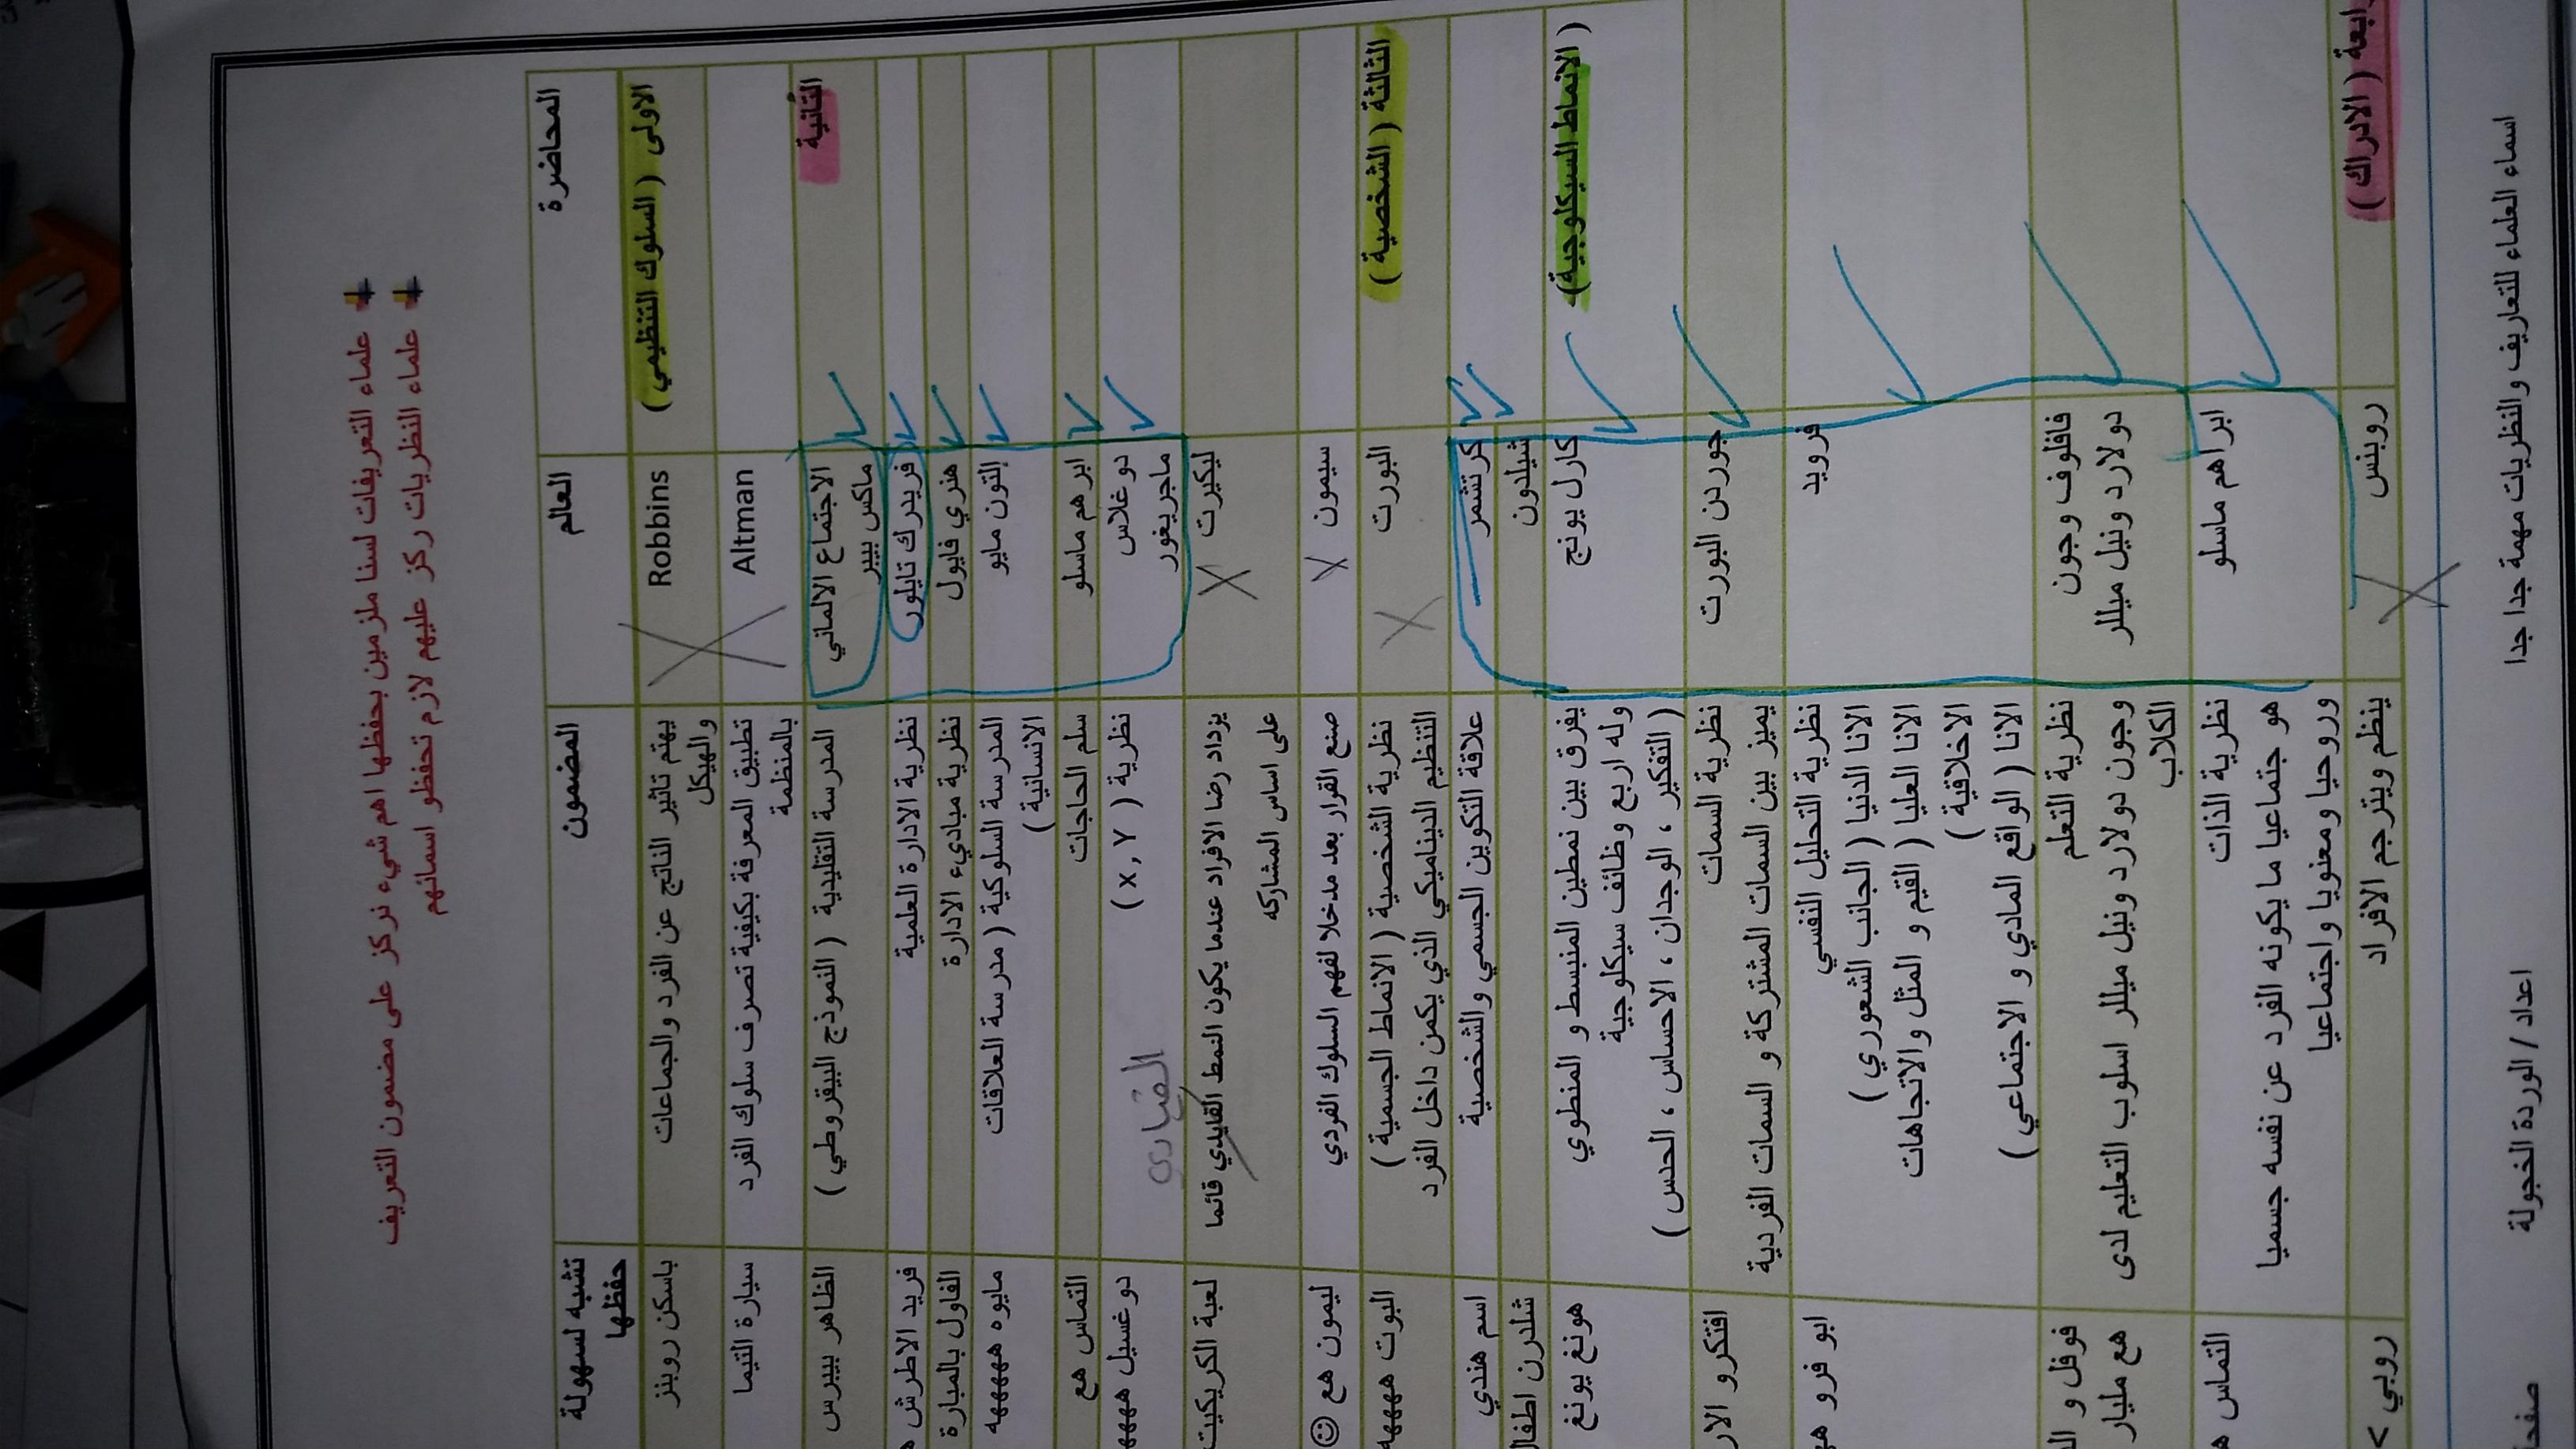 علماء التعريفات لسنا ملزمين بحفظها اهم شيء نركز على مضمون التعريف
علماء النظريات ركز عليهم لازم تحفظو اسمائهم
المحاضرة العالم المضمون تشبه لسهولة
حفظها
الاولى ( السلوك التنظيمي ) Robbins يهتم تاثير الناتج عن الفرد والجماعات باسكن روبنز
والهيكل
Altman تطبيق المعرفة بكيفية تصرف سلوك الفرد سيارة التيما
بالمنظمة
الثانية الاجتماع الالماني المدرسة التقليدية ( النموذج البيقروطي ) الظاهر بيبرس
ماكس بيبر
فريدرك تايلور نظرية الادارة العلمية فريد الاطرش
هنري فايول نظرية مباديء الادارة الفاول بالمبارة
إلتون مايو المدرسة السلوكية ( مدرسة العلاقات مايوه ههههه
الانسانية )
ابرهم ماسلو سلم الحاجات التماس هع
دوغلاس نظرية ( x , Y ) دوغسيل هههه
ماجريغور
القيادي
ليكيرت يزداد رضا الافراد عندما يكون النمط القايدي قائما لعبة الكريكيت
على اساس المشاركه
سيمون صنع القرار بعد مدخلا لفهم السلوك الفردي ليمون هع ☺
الثالثة ( الشخصية ) البورت نظرية الشخصية ( الانماط الجسمية ) البوت ههههه
التنظيم الديناميكي الذي يكمن داخل الفرد
كرتشمر علاقة التكوين الجسمي والشخصية اسم هندي
شيلدون شلدرن اطفال
( الانماط السيكلوجية) كارل يونج يفرق بين نمطين المنبسط و المنطوي هونغ يونغ
وله اربع وظائف سيكلوجية
( التفكير ، الوجدان ، الاحساس ، الحدس )
جوردن البورت نظرية السمات افتكرو الار
يميز بين السمات المشتركة و السمات الفردية
فرويد نظرية التحليل النفسي ابو فرو
الانا الدنيا ( الجانب الشعوري )
الانا العليا ( القيم و المثل والاتجاهات
الاخلاقية )
الانا ( الواقع المادي و الاجتماعي )
فافلوف وجون نظرية التعلم فوفل و
دولارد ونيل ميللر وجون دولارد ونيل ميللر اسلوب التعليم لدى هع مليار
الكلاب
ابراهم ماسلو نظرية الذات التماس
هو جتماعيا ما يكونه الفرد عن نفسه جسميا
وروحيا ومعنويا واجتماعيا
رابعة ( الادراك ) روبنس ينظم ويترجم الافراد روبي
اسماء العلماء للتعاريف والنظريات مهمة جدا جدا اعداد / الوردة الخجولة